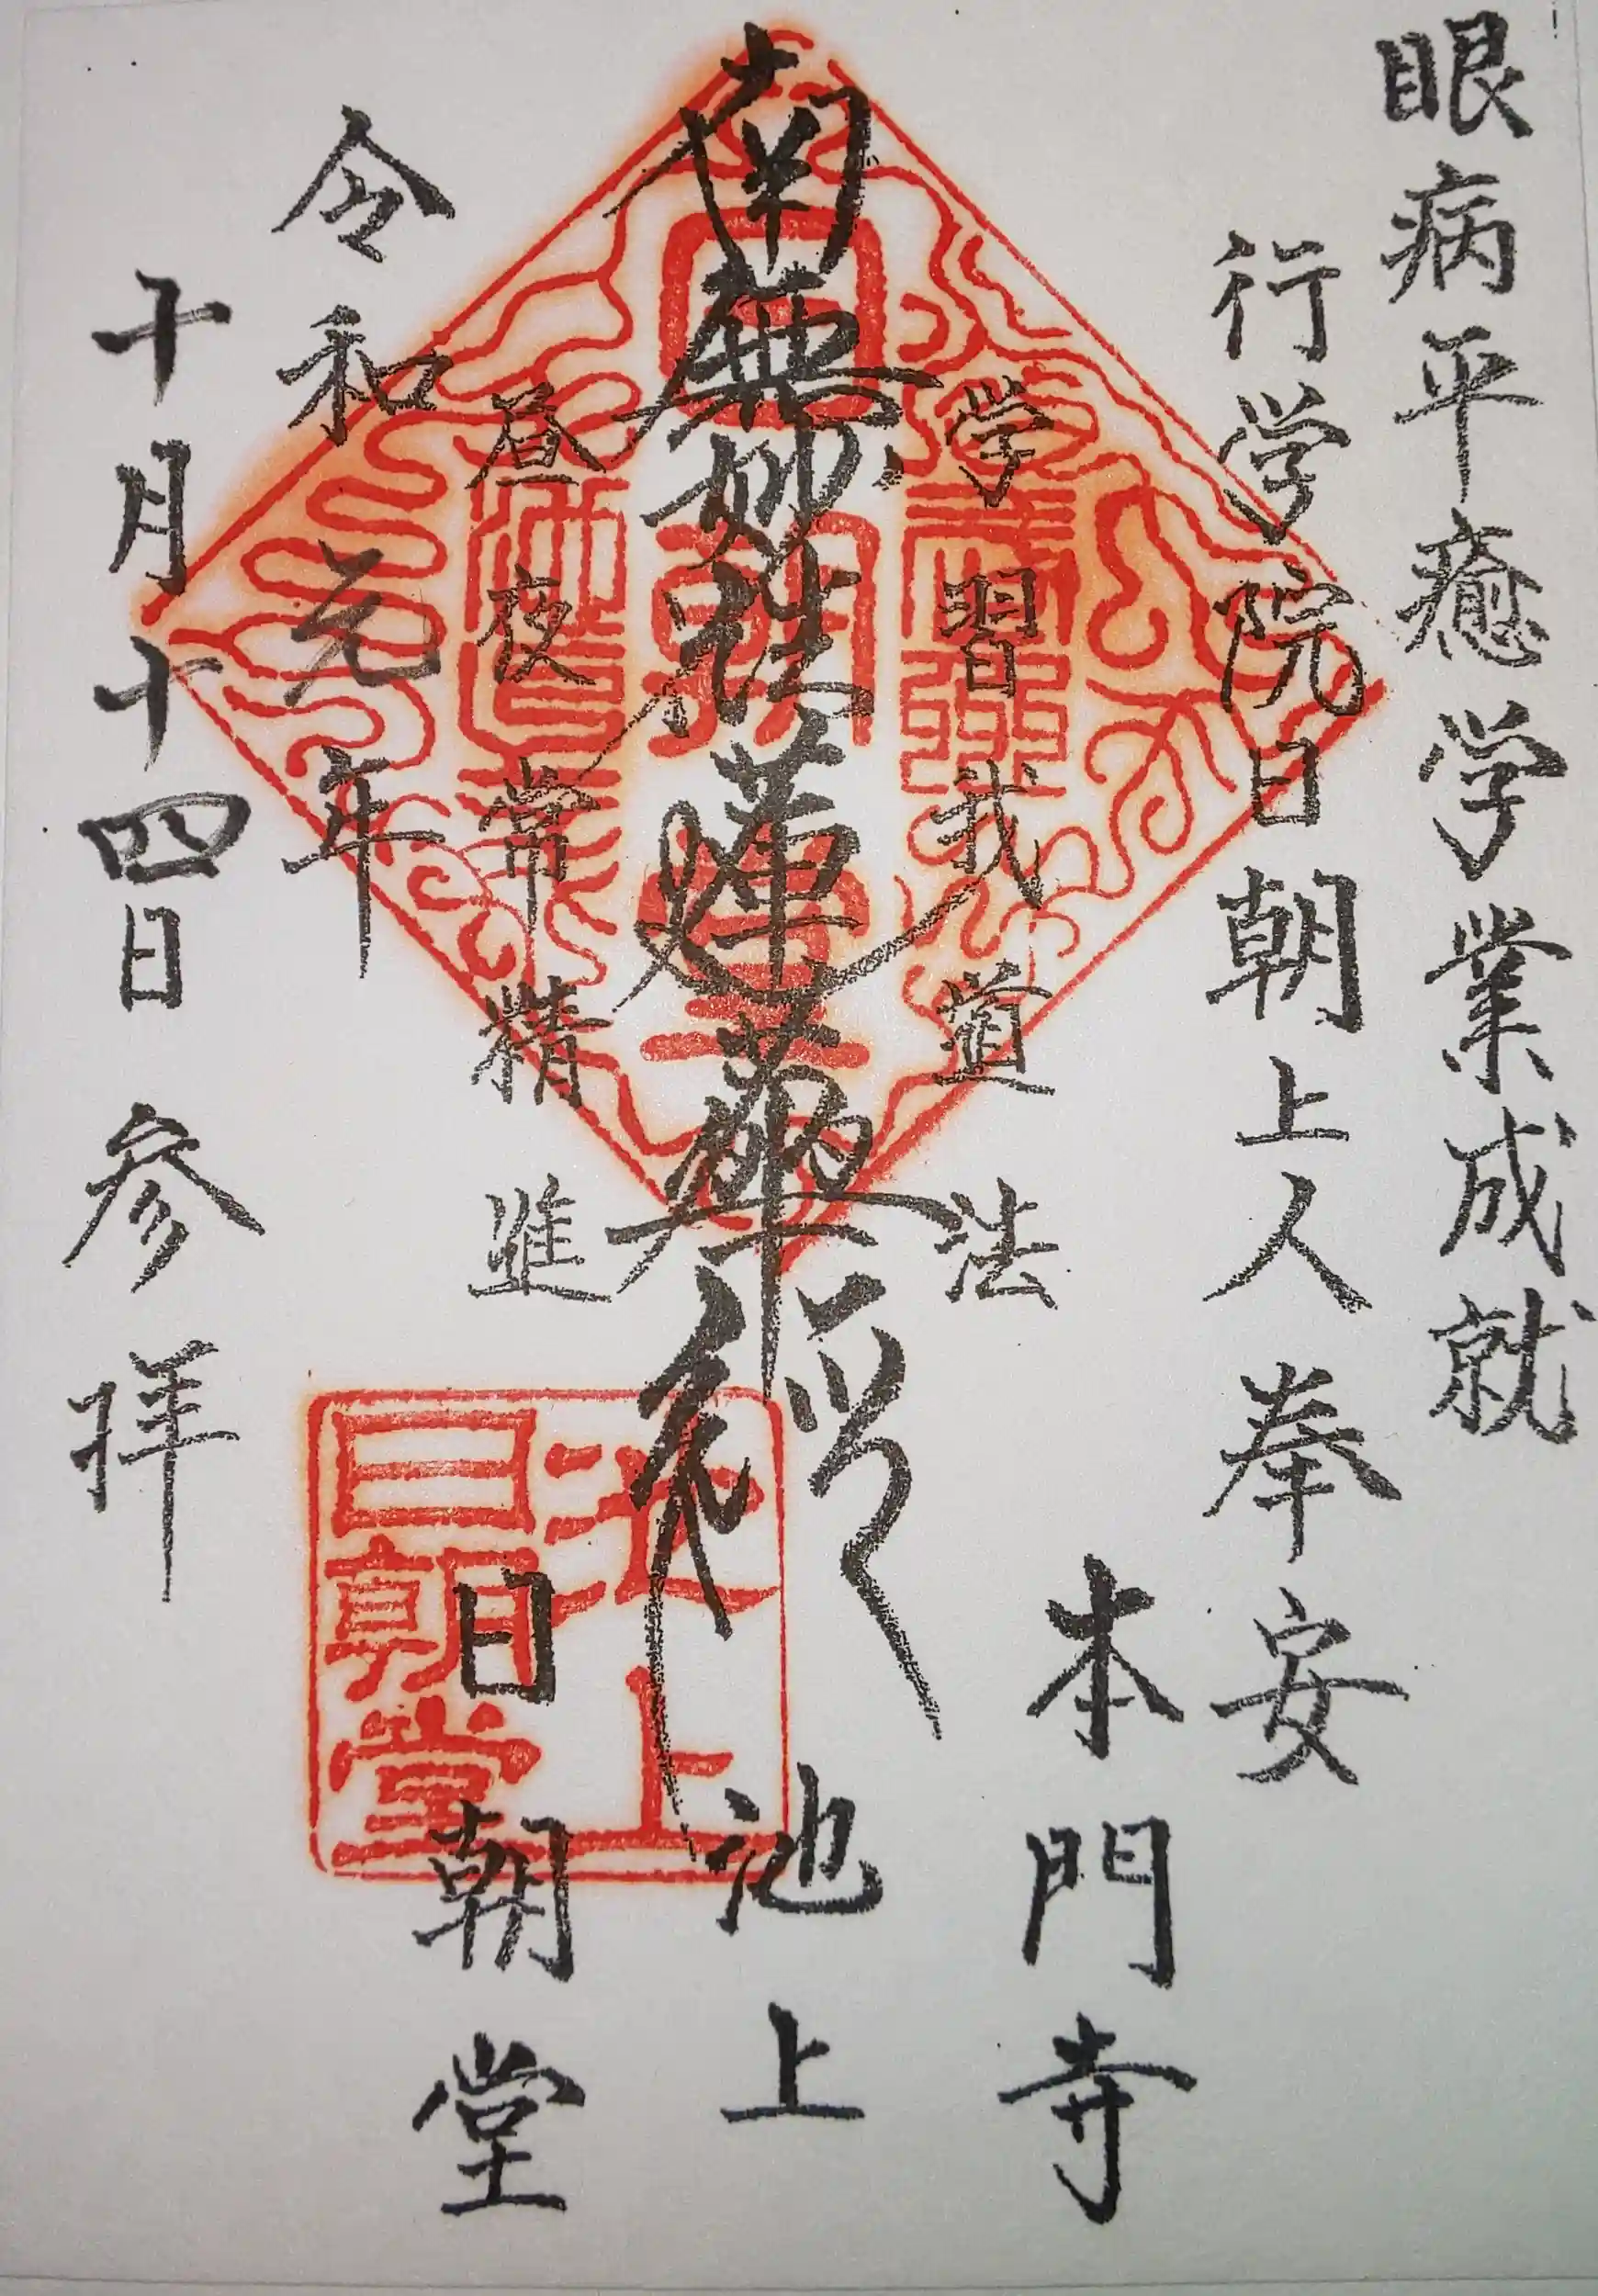 眼病平癒学業成就
行学院日朝上人奉安
本門寺
学習我道法
南無妙法蓮華経
池上
昼夜常精進
日朝堂
令和元年
十月十四日参拝
池上
日朝堂